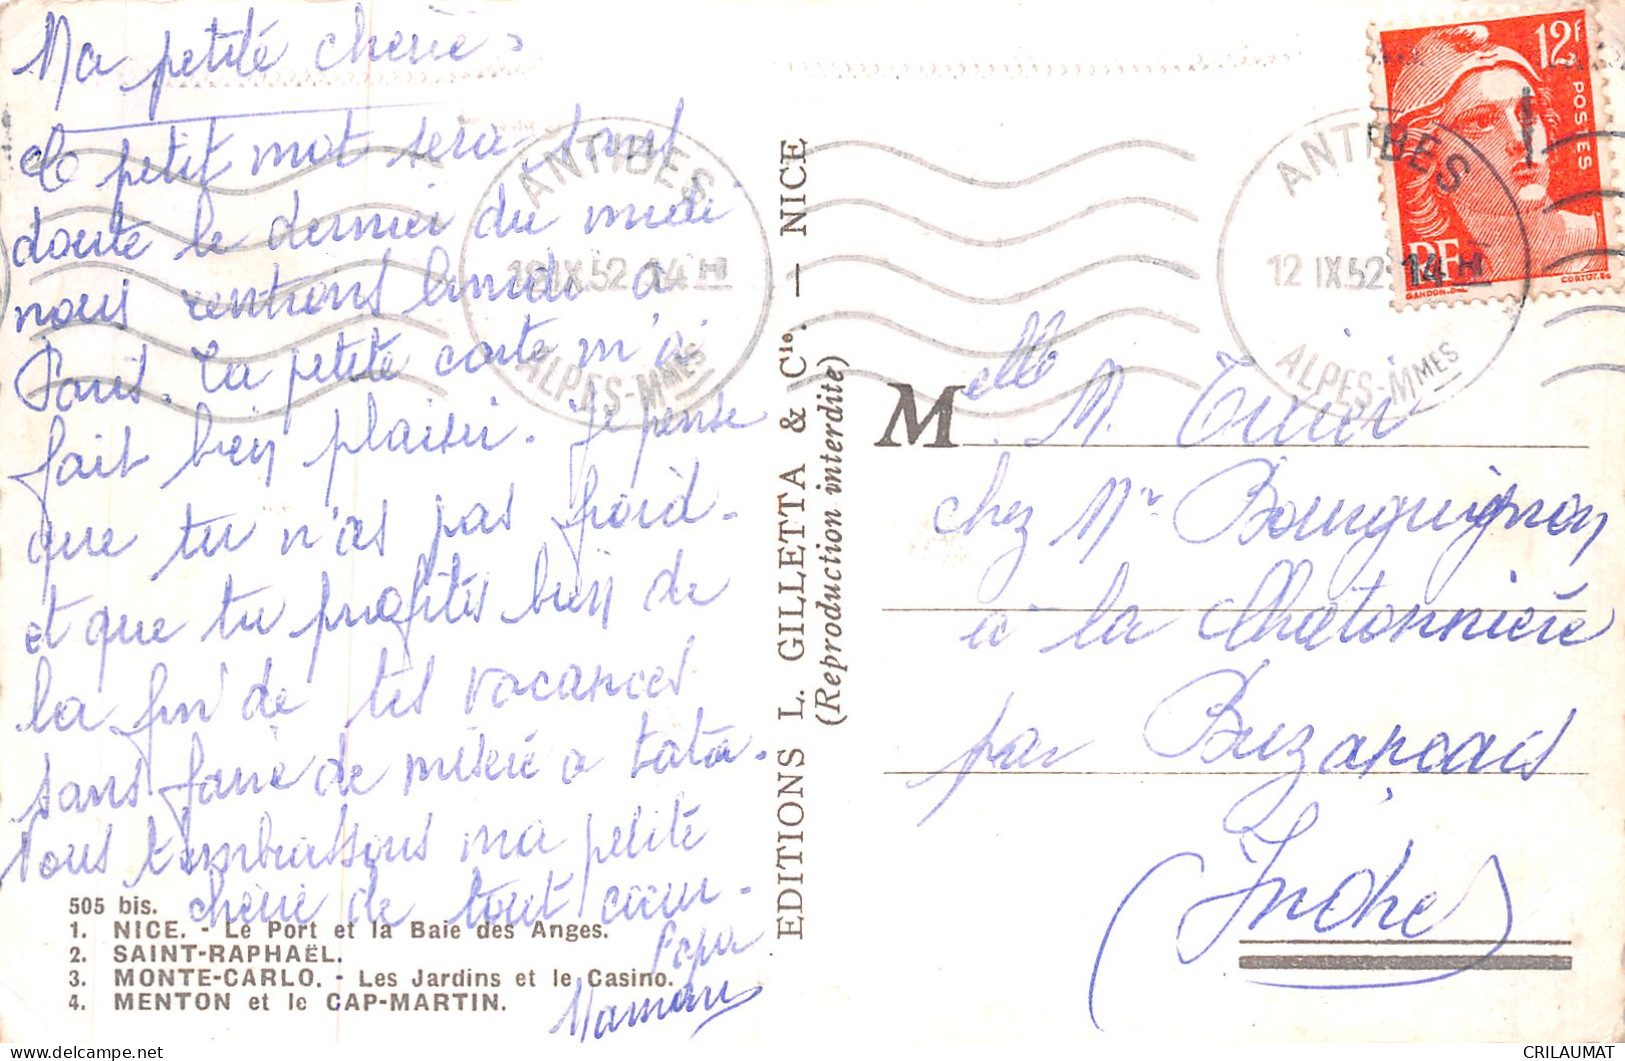 Ma petite chérie,
Ce petit mot sera sans
doute le dernier du midi
nous rentrons lundi à
Paris. Ta petite carte m'a
fait bien plaisir. Je pense
que tu n'as pas froid.
et que tu profites bien de
la fin de tes vacances
sans faire de misère à tata.
Nous t'embrassons ma petite
chérie de tout cœur.
Papa
Maman
505 bis.
1. NICE. - Le Port et la Baie des Anges.
2. SAINT-RAPHAËL.
3. MONTE-CARLO. - Les Jardins et le Casino.
4. MENTON et le CAP-MARTIN.
EDITIONS L. GILLETTA & Cie. — NICE
(Reproduction interdite)
ANTIBES
12 IX.52 14 H
ALPES-MMES
ANTIBES
12 IX.52 14 H
ALPES-MMES
12F
POSTES
RF
GANDON-DEL
CORTOT.SC
Melle M.
chez Mr Bourguignon
à la Chatonnière
par Buzancais
(Indre)
delcampe.net
CRILAUMAT